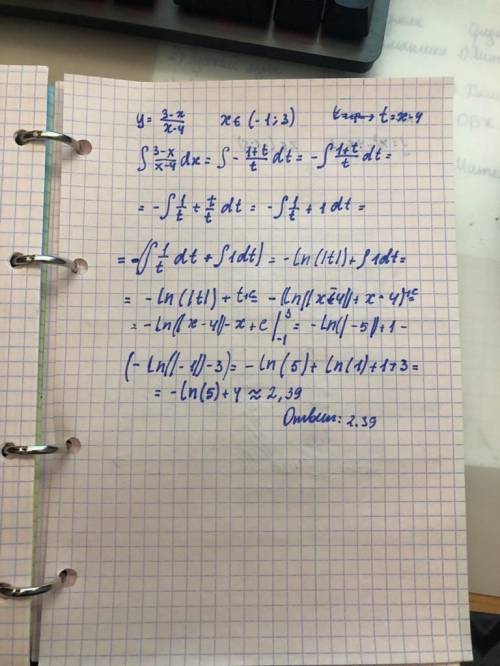 y = \frac{3-x}{x-4} x ∈ (-1; 3) t = x-4
∫ \frac{3-x}{x-4} dx = ∫ - \frac{1+t}{t} dt = - ∫ \frac{1+t}{t} dt =
= - ∫ \frac{1}{t} + \frac{t}{t} dt = - ∫ \frac{1}{t} + 1 dt =
= -(∫ \frac{1}{t} dt + ∫ 1 dt) = - ln(|t|) + ∫ 1 dt =
= - ln(|t|) + t + c = -(ln(|x-4|) + x-4) + c =
= - ln(|x-4|) - x + c |_{-1}^{3} = - ln(|-5|) + 1 -
(- ln(|-1|) - 3) = - ln(5) + ln(1) + 1 + 3 =
= - ln(5) + 4 ≈ 2,39
Ответ: 2.39